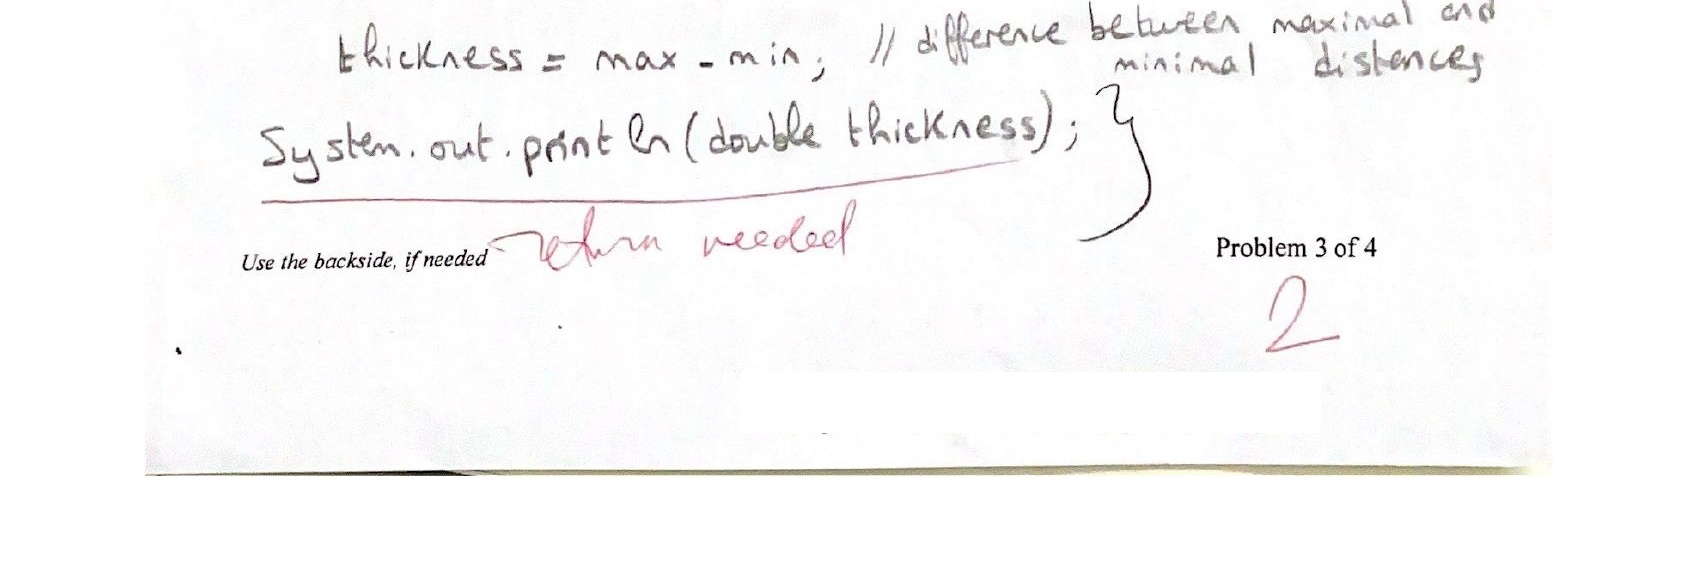 thickness = max - min; // difference between maximal and
minimal distances
System.out.println(double thickness); }
return needed
Use the backside, if needed
Problem 3 of 4
2